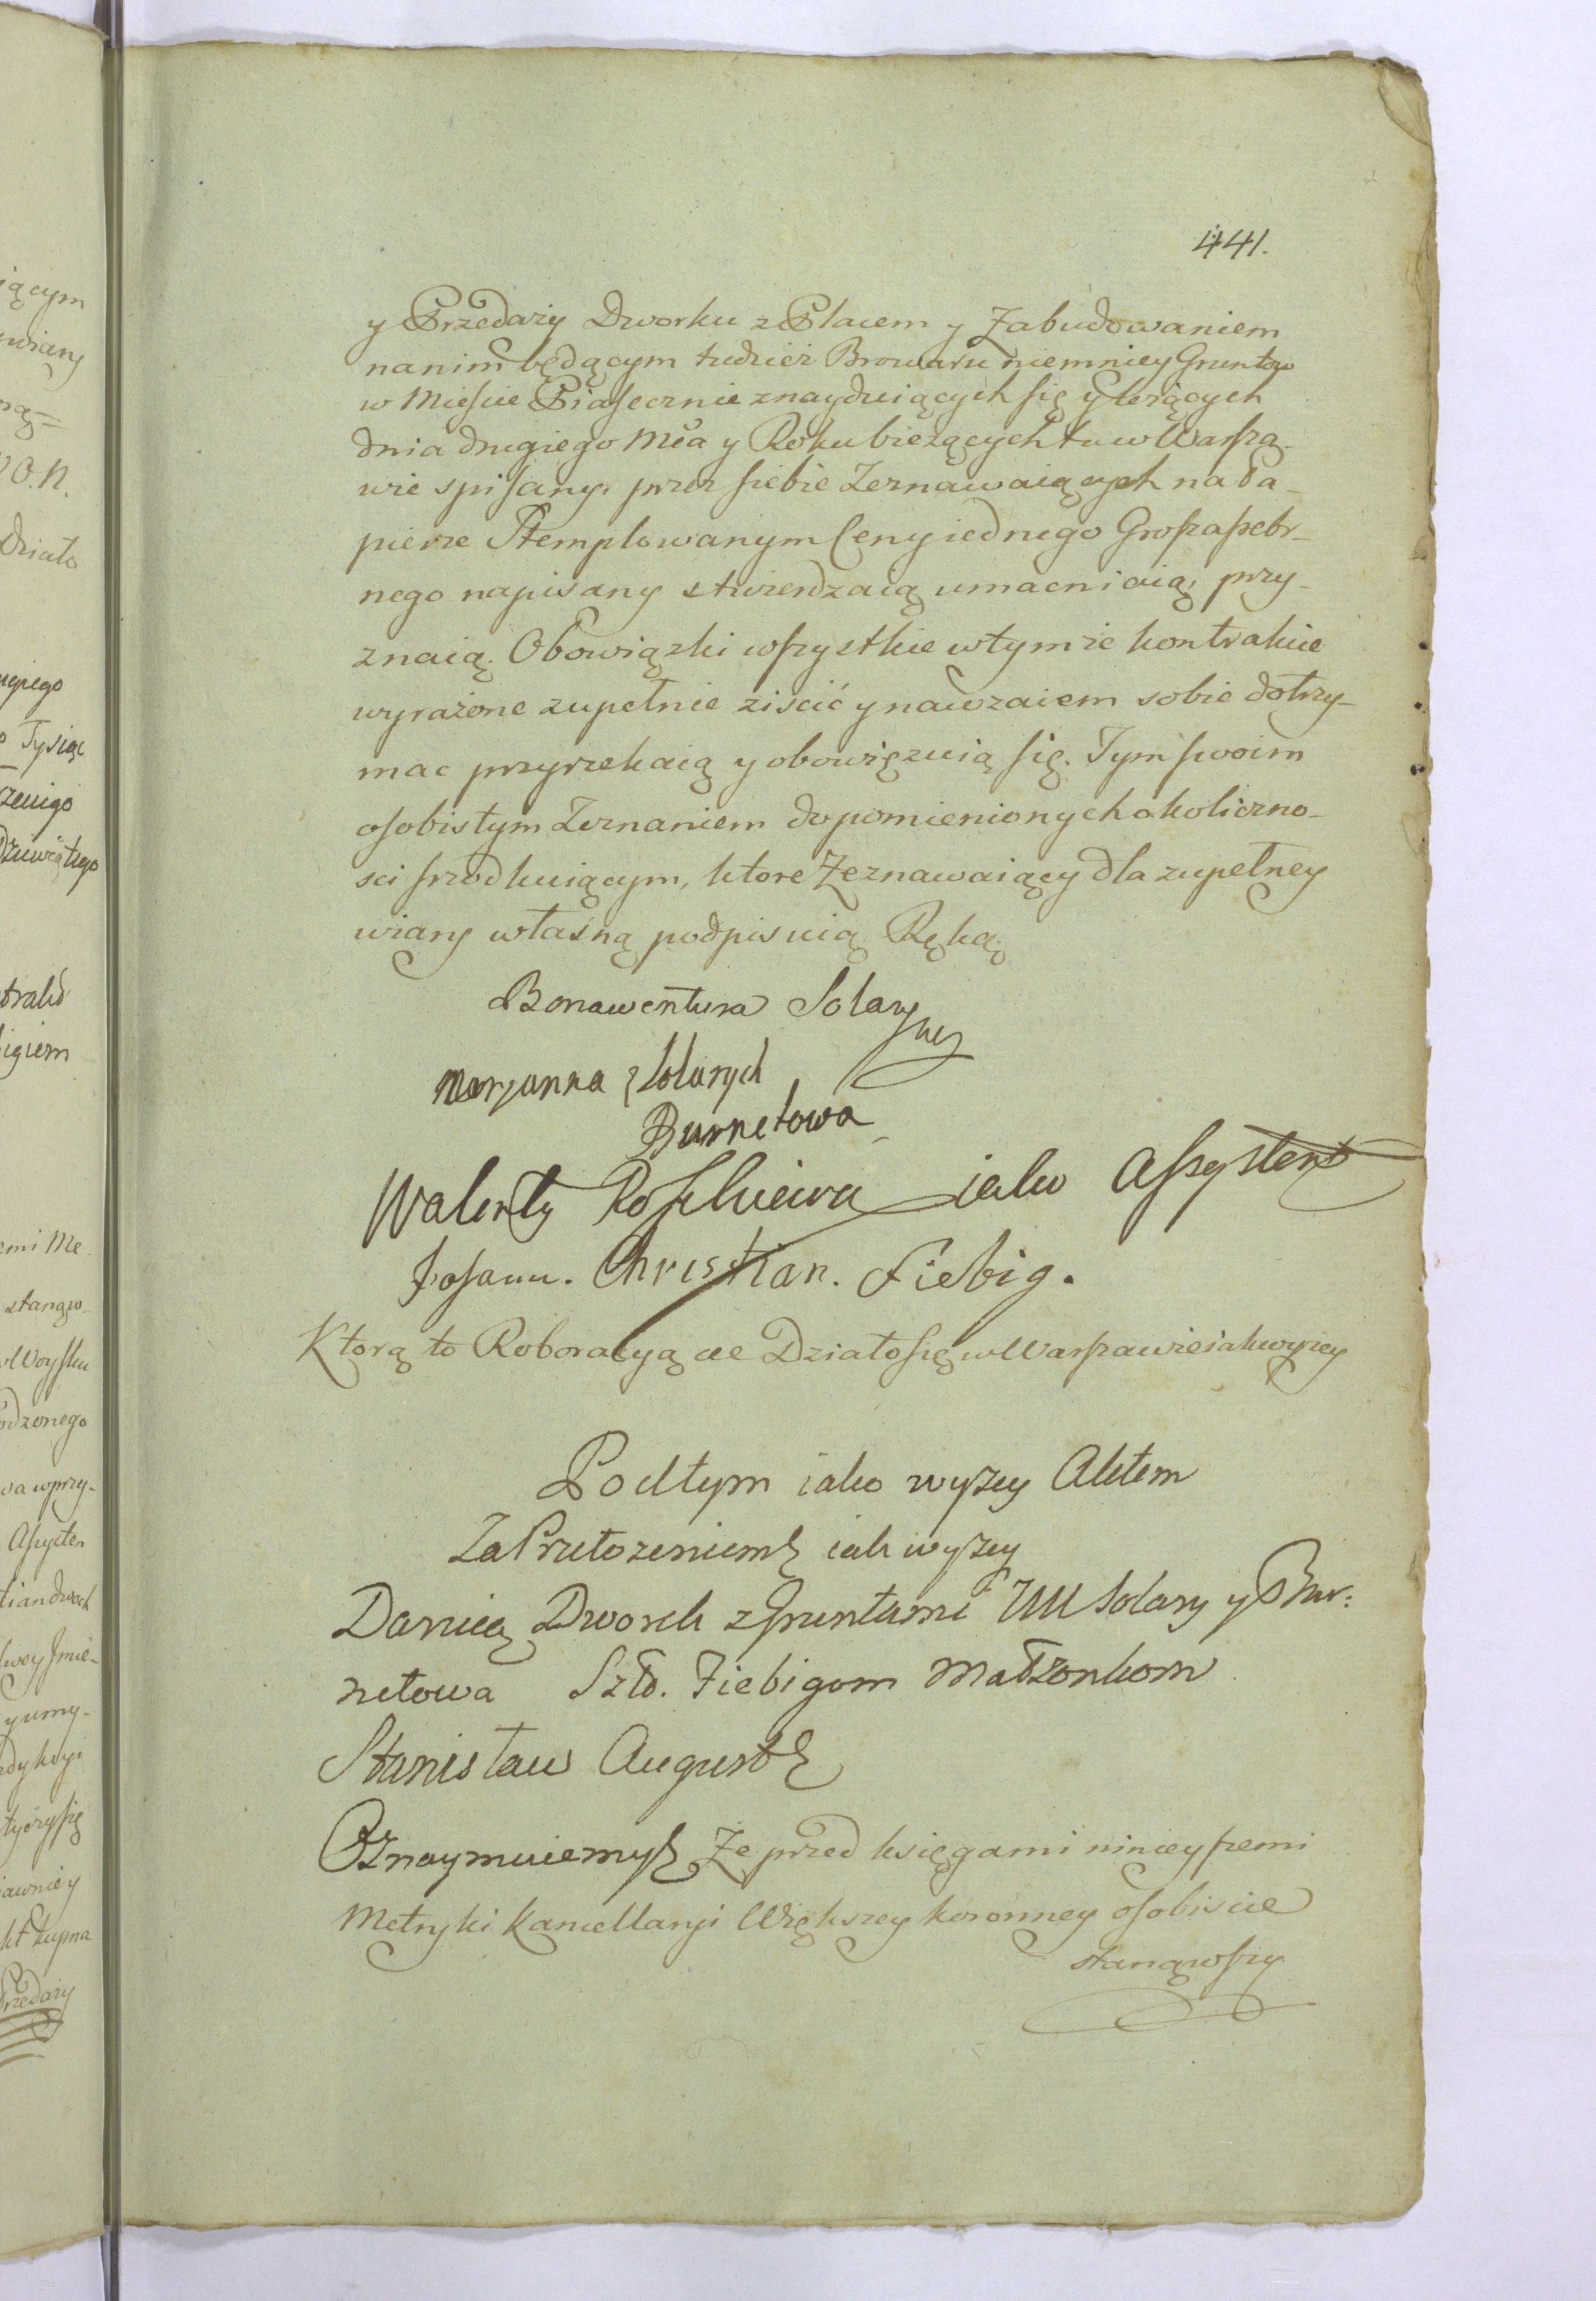 441.
y Przedaży Dworku z Placem y Zabudowaniem
na nim będącym tudzież Browaru niemniey Gruntow
w Mieście Piasecznie znayduiących się y leżących
dnia drugiego Mca y Roku bieżących tu w Warsza-
wie spisany, przez siebie Zeznawaiących na Pa-
pierze Stemplowanym Ceny iednego Grosza srebr-
nego napisany stwierdzaią umacniaią, przy-
znaią. Obowiązki wszystkie w tymże kontrakcie
wyrażone zupełnie ziscić y nawzaiem sobie dotrzy-
mac przyrzekaią y obowięzuią się. Tym swoim
osobistym Zeznaniem dopomienionych okoliczno-
sci srzodkuiącym, ktore Zeznawaiący dla zupełney
wiary własną podpisuią Ręką.
Bonawentura Solary
Maryanna z Solarych
Burnetowa
Walenty jako Assystent
Johann. Christian. Fiebig.
Ktorą to Roboracyą etc Działo się w Warszawie iak wyzey
Pod tym iako wyzey Aktem
Za Przełozeniem iak wyzey
Daruią Dworek z Gruntami UU Solary y Bur:
netowa Szł. Fiebigom Małżonkom
Stanisław August
Oznaymuiemy Ze przed księgami ninieyszemi
Metryki Kancellaryi Większey koronney osobiscie
stanąwszy
ącym
wiary
O.N.
Działo
Tysiąc
Dziewiątego
emi Me
stanąw-
Woysku
odzonego
wa w przy-
Assysten
tian dwoch
yumy-
awniey
kt kupna
Przedaży